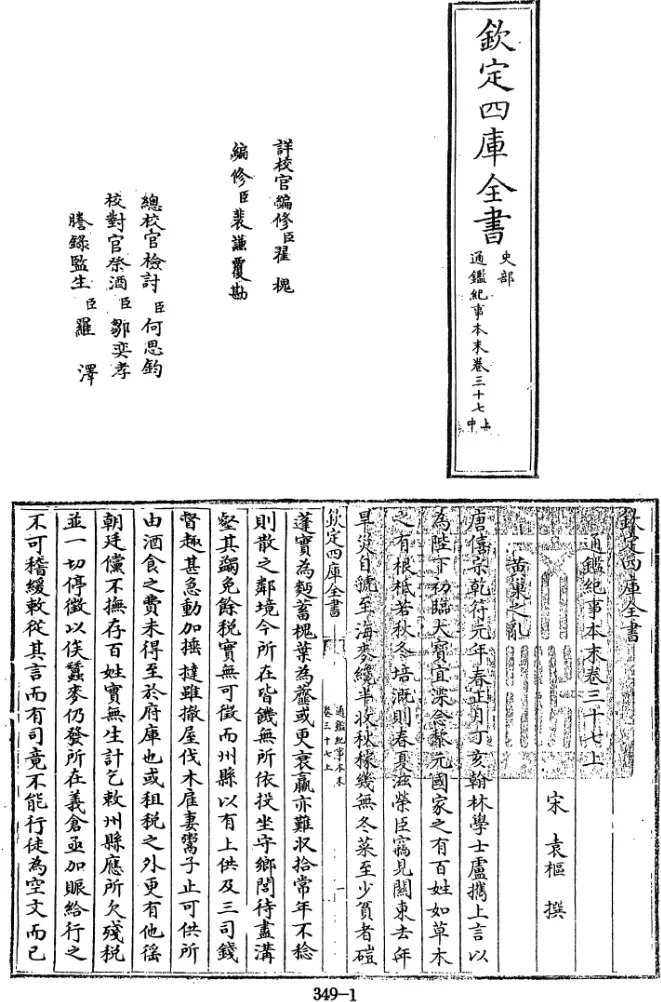 欽定四庫全書
史部
通鑑紀事本末卷三十七上中
詳校官編修臣翟槐
編修臣裴謙覆勘
總校官檢討臣何思鈞
校對官祭酒臣鄒奕孝
謄錄監生臣羅澤
欽定四庫全書
通鑑紀事本末卷三十七上
宋袁樞撰
黃巢之亂
唐僖宗乾符元年春正月丁亥翰林學士盧攜上言以
為陛下初臨大寶宜深念黎元國家之有百姓如草木
之有根柢若秋冬培溉則春夏滋榮臣竊見關東去年
旱災自虢至海麥纔半收秋稼幾無冬菜至少貧者磑
欽定四庫全書
通鑑紀事本末
卷三十七上
一
蓬實為麪蓄槐葉為虀或更衰羸亦難収拾常年不稔
則散之鄰境今所在皆饑無所依投坐守鄉閭待盡溝
壑其蠲免餘税實無可徵而州縣以有上供及三司錢
督趣甚急動加捶撻雖撤屋伐木雇妻鬻子止可供所
由酒食之費未得至於府庫也或租税之外更有他徭
朝廷儻不撫存百姓實無生計乞敕州縣應所欠殘税
並一切停徵以俟蠶麥仍發所在義倉亟加賑給行之
不可稽緩敕從其言而有司竟不能行徒為空文而已
349-1